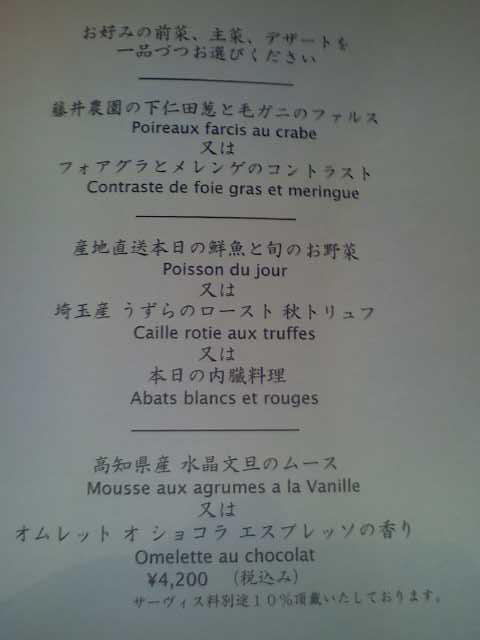 お好みの前菜、主菜、デザートを
一品づつお選びください
藤井農園の下仁田葱と毛ガニのファルス
Poireaux farcis au crabe
又は
フォアグラとメレンゲのコントラスト
Contraste de foie gras et meringue
産地直送本日の鮮魚と旬のお野菜
Poisson du jour
又は
埼玉産 うずらのロースト 秋トリュフ
Caille rotie aux truffes
又は
本日の内臓料理
Abats blancs et rouges
高知県産 水晶文旦のムース
Mousse aux agrumes a la Vanille
又は
オムレット オ ショコラ エスプレッソの香り
Omelette au chocolat
¥4,200 （税込み）
サーヴィス料別途１０％頂戴いたしております。